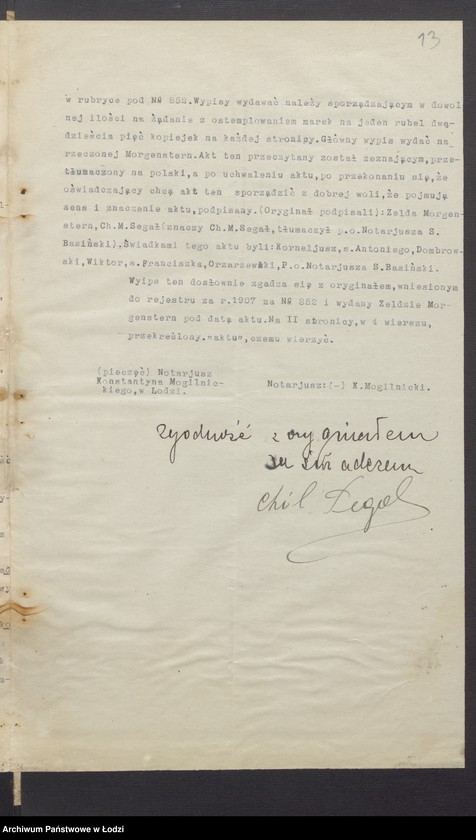 13
w rubryce pod № 852.Wypisy wydawać należy sporządzającym w dowol
nej ilości na żądanie z ostemplowaniem marek na jeden rubel dwa-
dzieścia pięć kopiejek na każdej stronicy.Główny wypis wydać na
rzeczonej Morgenstern.Akt ten przeczytany został zeznającym,prze-
tłumaczony na polski,a po uchwaleniu aktu,po przekonaniu się,że
oświadczający chcą akt ten sporządzić z dobrej woli,że pojmują
sens i znaczenie aktu,podpisany.(Oryginał podpisali):Zelda Morgen-
stern,Ch.M.Segał(znaczy Ch.M.Segał,tłumaczył p.o.Notarjusza S.
Basiński).Świadkami tego aktu byli:Korneljusz,s.Antoniego,Dombrow-
ski,Wiktor,s.Franciszka,Orzarzewski,P.o.Notarjusza S.Basiński.
Wyips ten dosłownie zgadza się z oryginałem,wniesionym
do rejestru za r.1907 za № 852 i wydany Zeldzie Mor-
genstern pod datą aktu.Na II stronicy,w 4 wierszu,
przekreślony."aktu",czemu wierzyć.
(pieczęć) Notarjusz
Konstantyna Mogilnic-
kiego,w Łodzi.
Notarjusz:(-) K.Mogilnicki.
zgodność z oryginałem
Chil Segał
Archiwum Państwowe w Łodzi